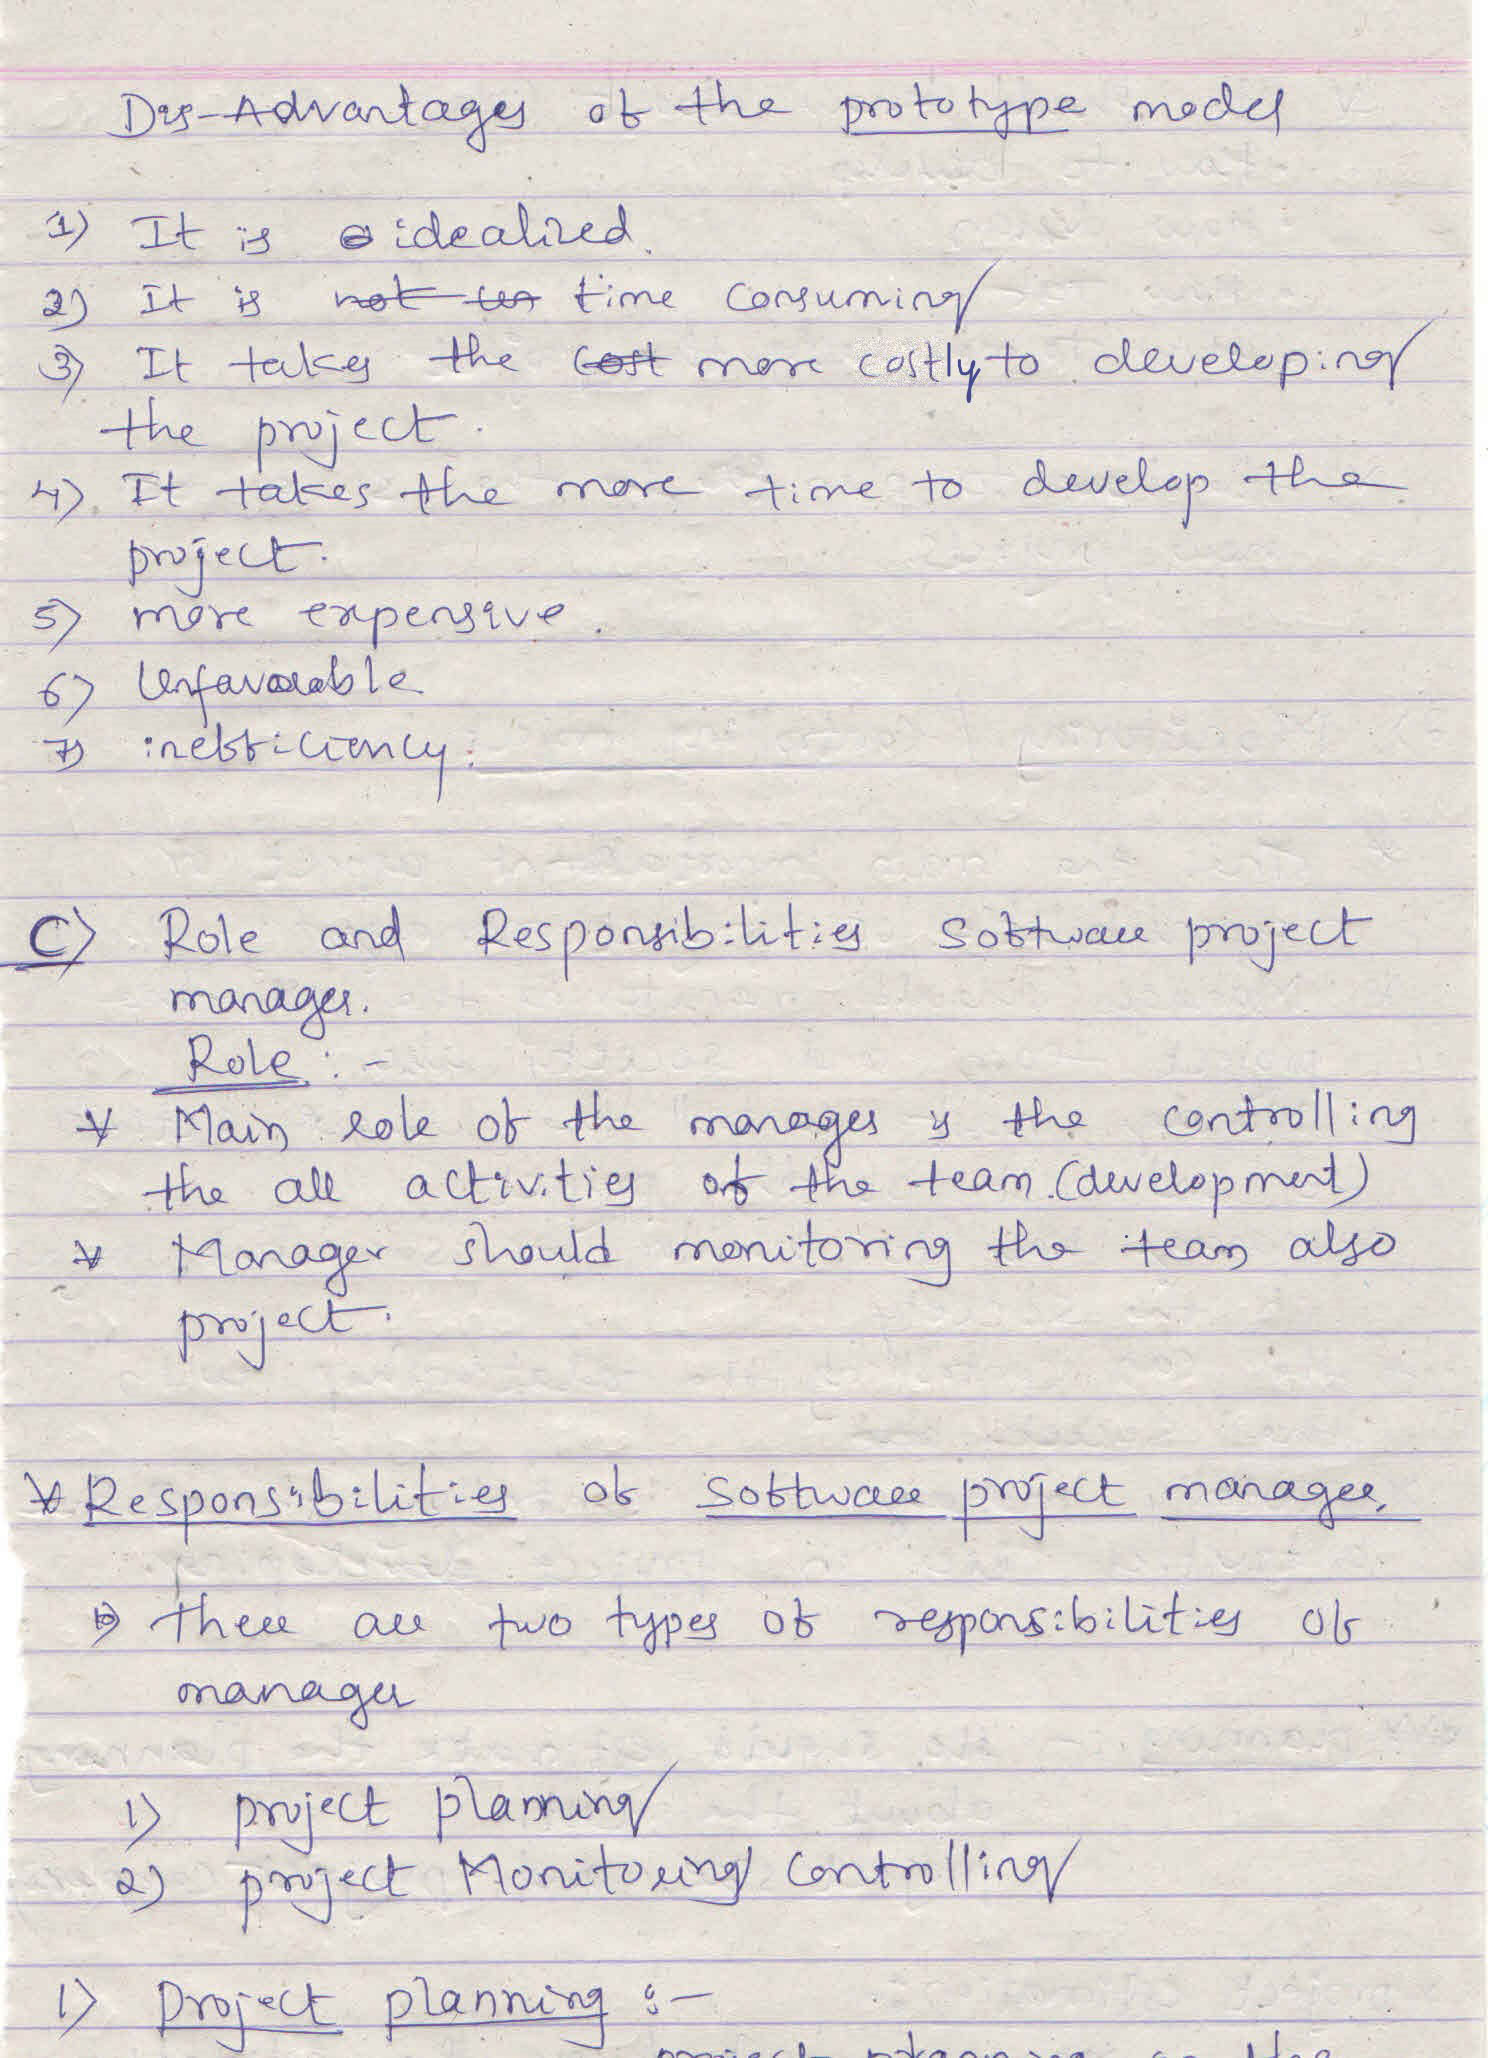 Dis-Advantages of the prototype model
1) It is idealized.
2) It is not time consuming
3) It takes the cost more costly to developing
the project.
4) It takes the more time to develop the
project.
5) more expensive.
6) Unfavourable
7) inefficiency.
C) Role and Responsibilities Software project
manager.
Role :-
* Main role of the manager is the controlling
the all activities of the team (development)
* Manager should monitoring the team also
project.
* Responsibilities of Software project manager.
there are two types of responsibilities of
manager
1) project planning
2) project Monitoring controlling
1) Project planning :-
project planning is the